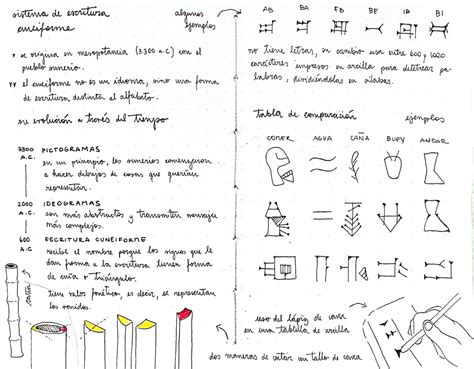 sistema de escritura
cuneiforme
* se origina en mesopotamia (3300 a.C) con el
pueblo sumerio.
** el cuneiforme no es un idioma, sino una forma
de escritura distinta al alfabeto.
su evolución a través del tiempo
3300 A.C. PICTOGRAMAS
en un principio, los sumerios comenzaron
a hacer dibujos de cosas que querían
representar.
2000 A.C. IDEOGRAMAS
son más abstractos y transmiten mensajes
más complejos.
600 A.C. ESCRITURA CUNEIFORME
recibe el nombre porque los signos que le
dan forma a la escritura tienen forma
de cuña o triángulo.
tiene valor fonético, es decir, se representan
los sonidos.
caña
algunos
ejemplos
AB BA EB BE IB BI
no tiene letras, en cambio usa entre 600 y 1000
caractéres impresos en arcilla para deletrear pa-
labras, dividiéndolas en sílabas.
tabla de comparación ejemplos
COMER AGUA CAÑA BUEY ANDAR
uso del lápiz de caña
en una tablilla de arcilla
dos maneras de cortar un tallo de caña